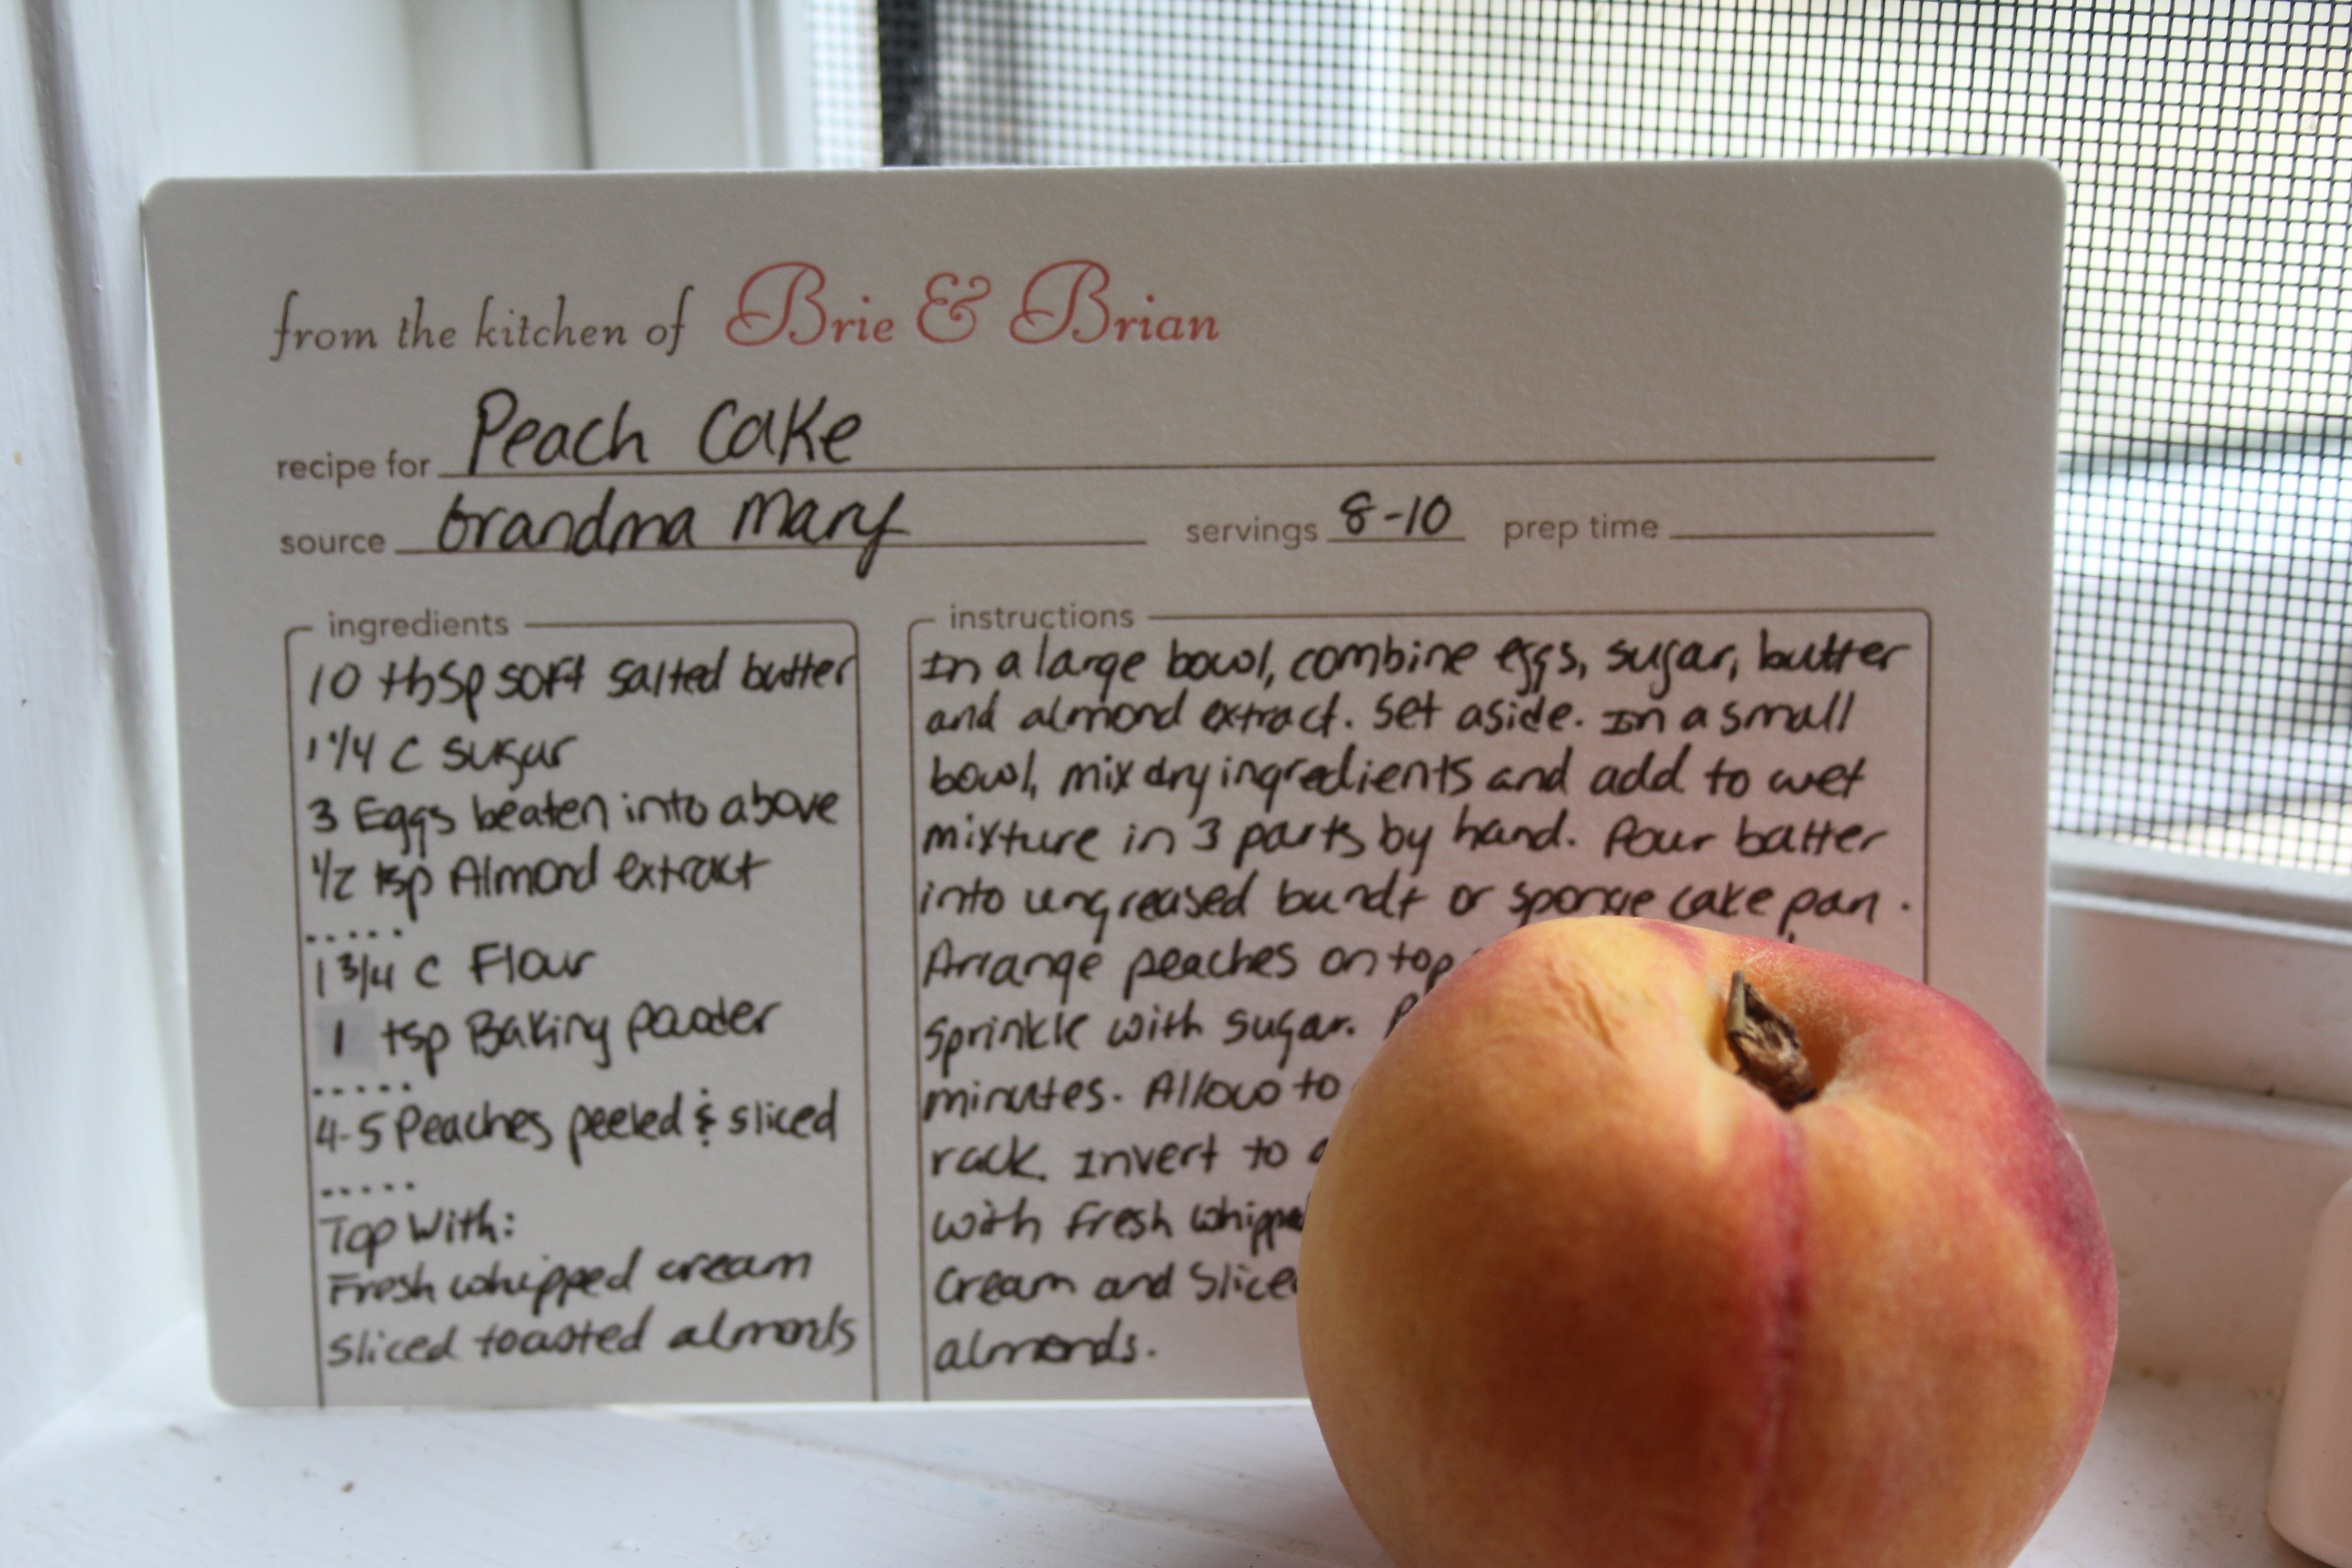 from the kitchen of Brie & Brian
recipe for Peach Cake
source Grandma Mary servings 8-10 prep time
ingredients
10 tbsp soft salted butter
1 1/4 C sugar
3 Eggs beaten into above
1/2 tsp Almond extract
.....
1 3/4 C Flour
1 tsp Baking powder
.....
4-5 Peaches peeled & sliced
.....
Top With:
Fresh whipped cream
Sliced toasted almonds
instructions
In a large bowl, combine eggs, sugar, butter
and almond extract. Set aside. In a small
bowl, mix dry ingredients and add to wet
mixture in 3 parts by hand. Pour batter
into ungreased bundt or sponge cake pan.
Arrange peaches on top
sprinkle with sugar.
minutes. Allow to
rack. Invert to
with fresh whipped
Cream and Slice
almonds.